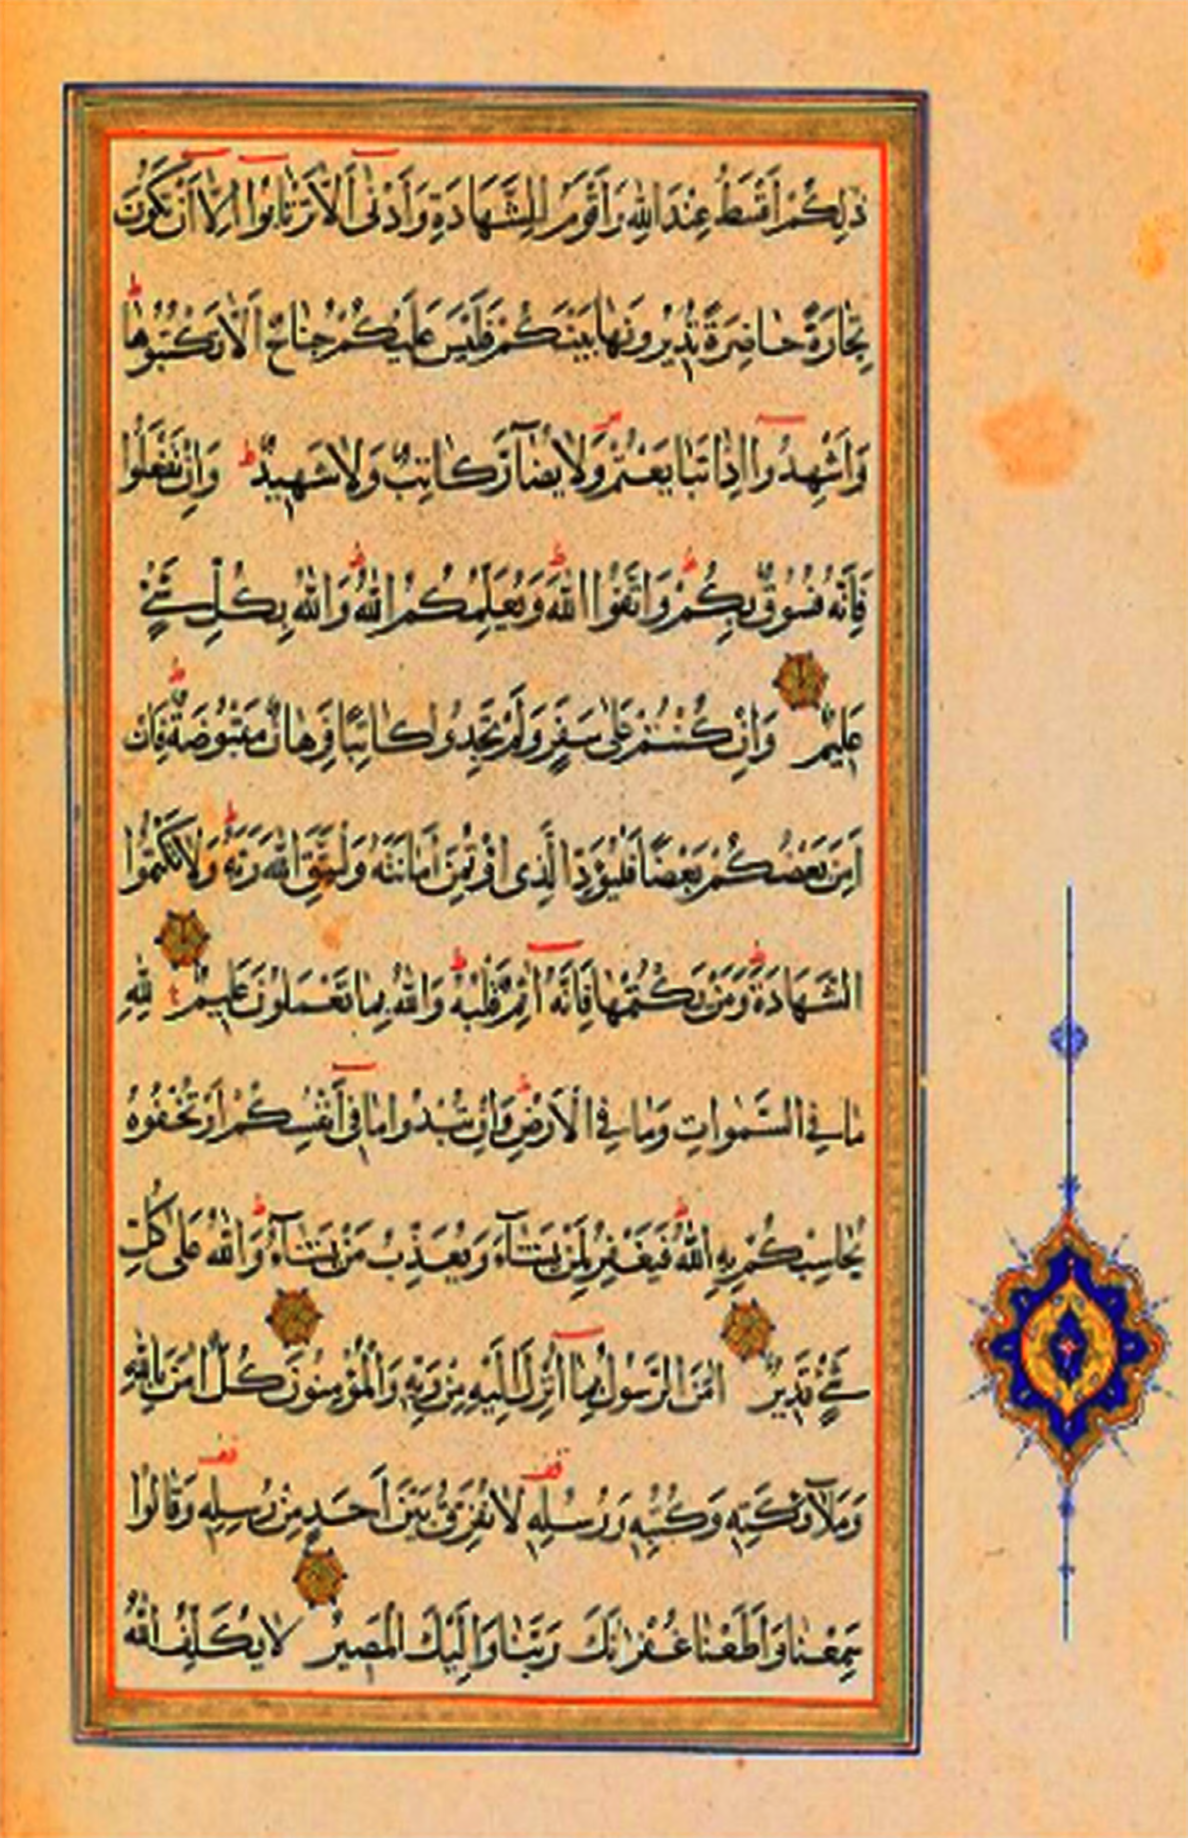 ذٰلِكُمْ اَقْسَطُ عِنْدَ اللهِ وَاَقْوَمُ لِلشَّهَادَةِ وَاَدْنٰى اَلَّا تَرْتَابُوا اِلَّا اَنْ تَكُونَ
تِجَارَةً حَاضِرَةً تُدِيرُونَهَا بَيْنَكُمْ فَلَيْسَ عَلَيْكُمْ جُنَاحٌ اَلَّا تَكْتُبُوهَا ط
وَاَشْهِدُوا اِذَا تَبَايَعْتُمْ وَلَا يُضَآرَّ كَاتِبٌ وَلَا شَهِيدٌ ط وَاِنْ تَفْعَلُوا
فَاِنَّهُ فُسُوقٌ بِكُمْ ط وَاتَّقُوا اللهَ ط وَيُعَلِّمُكُمُ اللهُ ط وَاللهُ بِكُلِّ شَيْءٍ
عَلِيمٌ وَاِنْ كُنْتُمْ عَلٰى سَفَرٍ وَلَمْ تَجِدُوا كَاتِبًا فَرِهَانٌ مَقْبُوضَةٌ ط فَاِنْ
اَمِنَ بَعْضُكُمْ بَعْضًا فَلْيُؤَدِّ الَّذِى اؤْتُمِنَ اَمَانَتَهُ وَلْيَتَّقِ اللهَ رَبَّهُ ط وَلَا تَكْتُمُوا
الشَّهَادَةَ ط وَمَنْ يَكْتُمْهَا فَاِنَّهُ اٰثِمٌ قَلْبُهُ ط وَاللهُ بِمَا تَعْمَلُونَ عَلِيمٌ لِلّٰهِ
مَا فِي السَّمٰوَاتِ وَمَا فِي الْاَرْضِ ط وَاِنْ تُبْدُوا مَا فِى اَنْفُسِكُمْ اَوْ تُخْفُوهُ
يُحَاسِبْكُمْ بِهِ اللهُ ط فَيَغْفِرُ لِمَنْ يَشَآءُ وَيُعَذِّبُ مَنْ يَشَآءُ ط وَاللهُ عَلٰى كُلِّ
شَيْءٍ قَدِيرٌ اٰمَنَ الرَّسُولُ بِمَا اُنْزِلَ اِلَيْهِ مِنْ رَبِّهِ وَالْمُؤْمِنُونَ كُلٌّ اٰمَنَ بِاللهِ
وَمَلَآئِكَتِهِ وَكُتُبِهِ وَرُسُلِهِ قف لَا نُفَرِّقُ بَيْنَ اَحَدٍ مِنْ رُسُلِهِ قف وَقَالُوا
سَمِعْنَا وَاَطَعْنَا غُفْرَانَكَ رَبَّنَا وَاِلَيْكَ الْمَصِيرُ لَا يُكَلِّفُ اللهُ